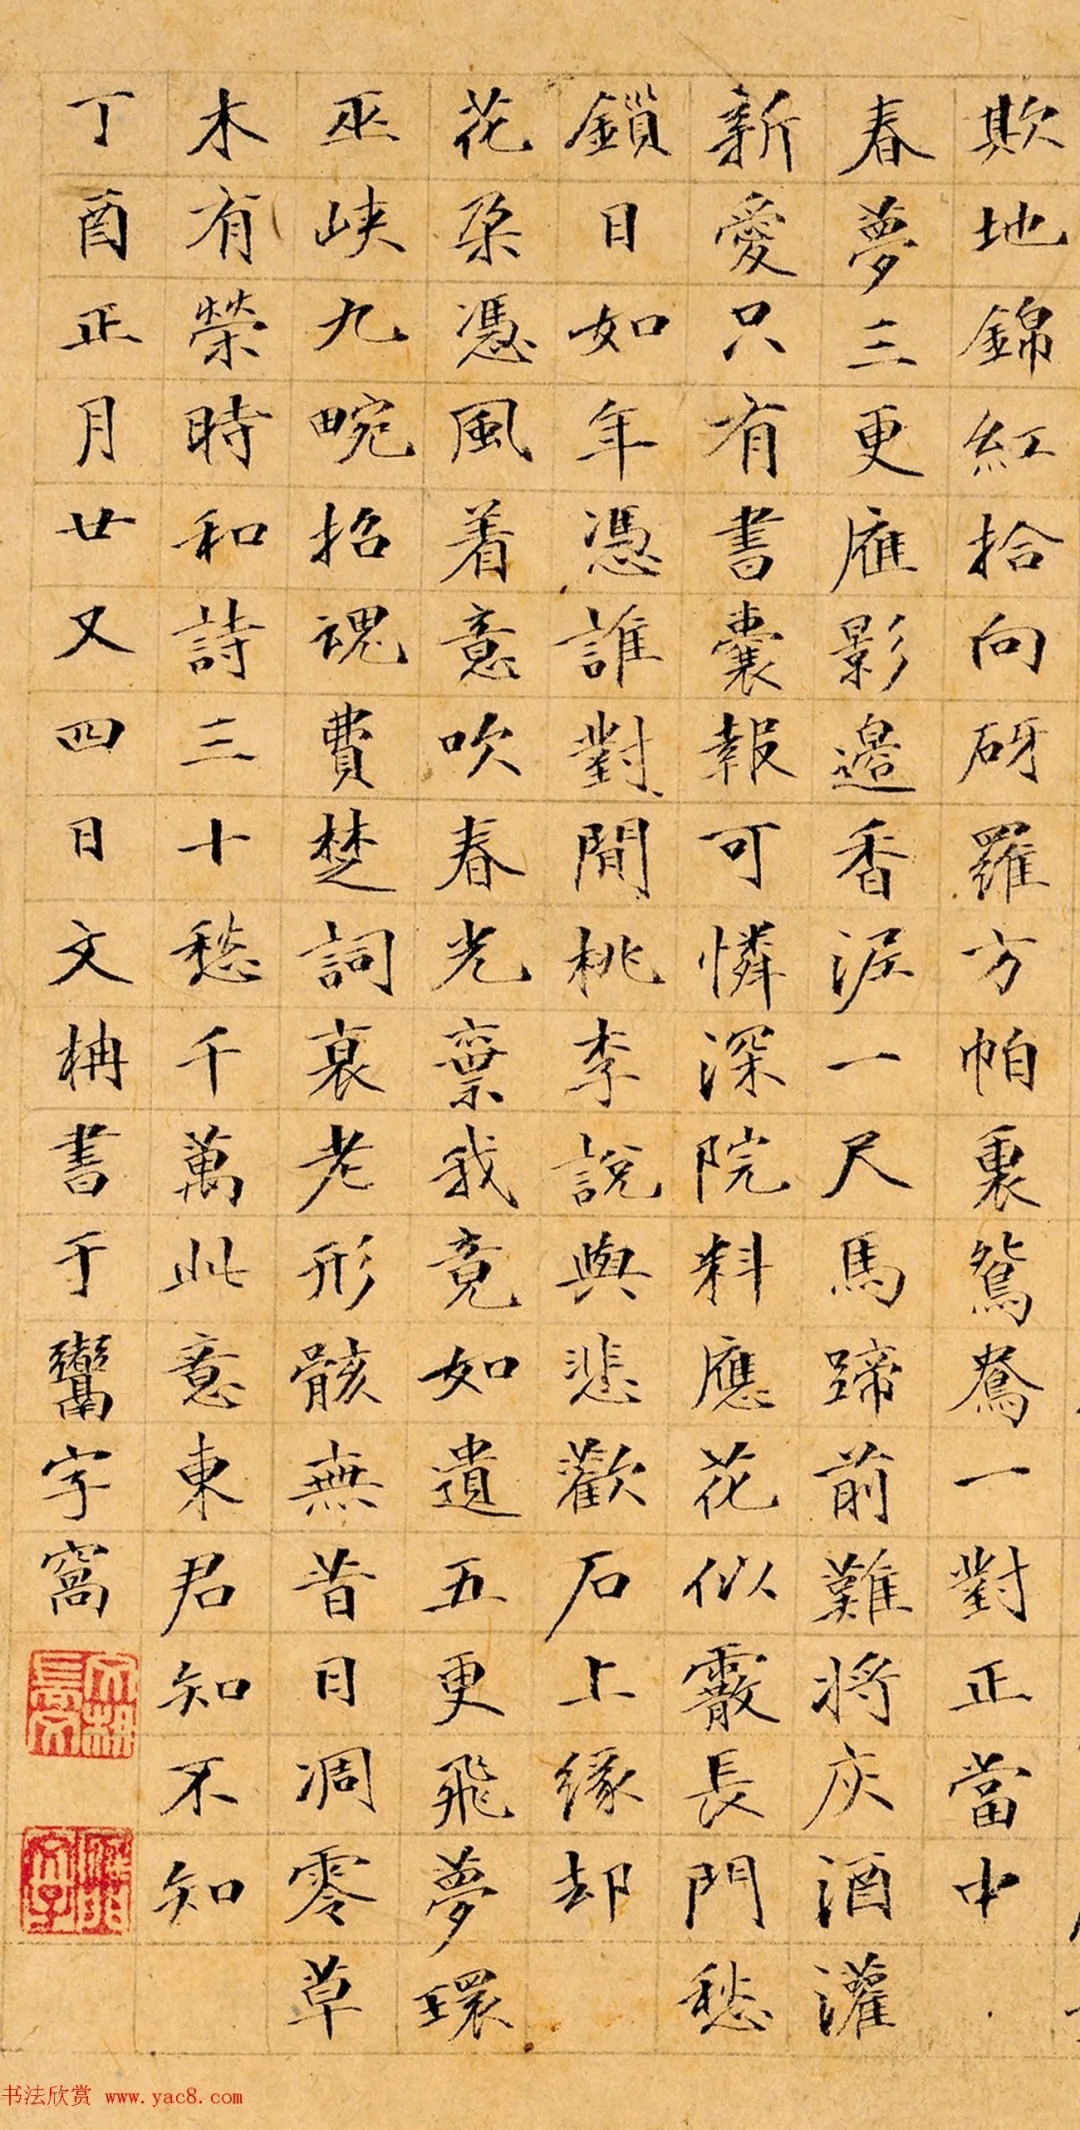 欺地錦紅拾向砑羅方帕裏鴛鴦一對正當中
春夢三更雁影邊香泥一尺馬蹄前難將灰酒灌
新愛只有書囊報可憐深院料應花似霰長門愁
鎖日如年憑誰對閒桃李說與悲歡石上緣却
花朶憑風着意吹春光棄我竟如遺五更飛夢環
巫峽九畹招魂費楚詞衰老形骸無昔日凋零草
木有榮時和詩三十愁千萬此意東君知不知
丁酉正月廿又四日文柟書于鸞字窩
书法欣赏 www.yac8.com